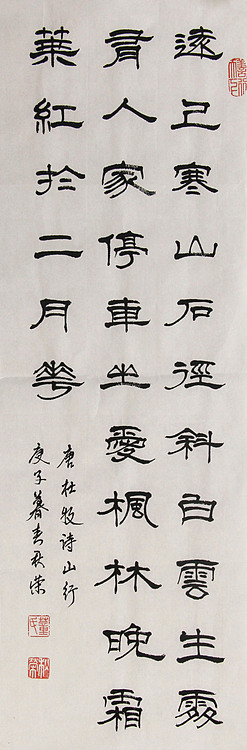 遠上寒山石徑斜白雲生處
有人家停車坐愛楓林晚霜
葉紅於二月花
唐杜牧诗山行
庚子暮春